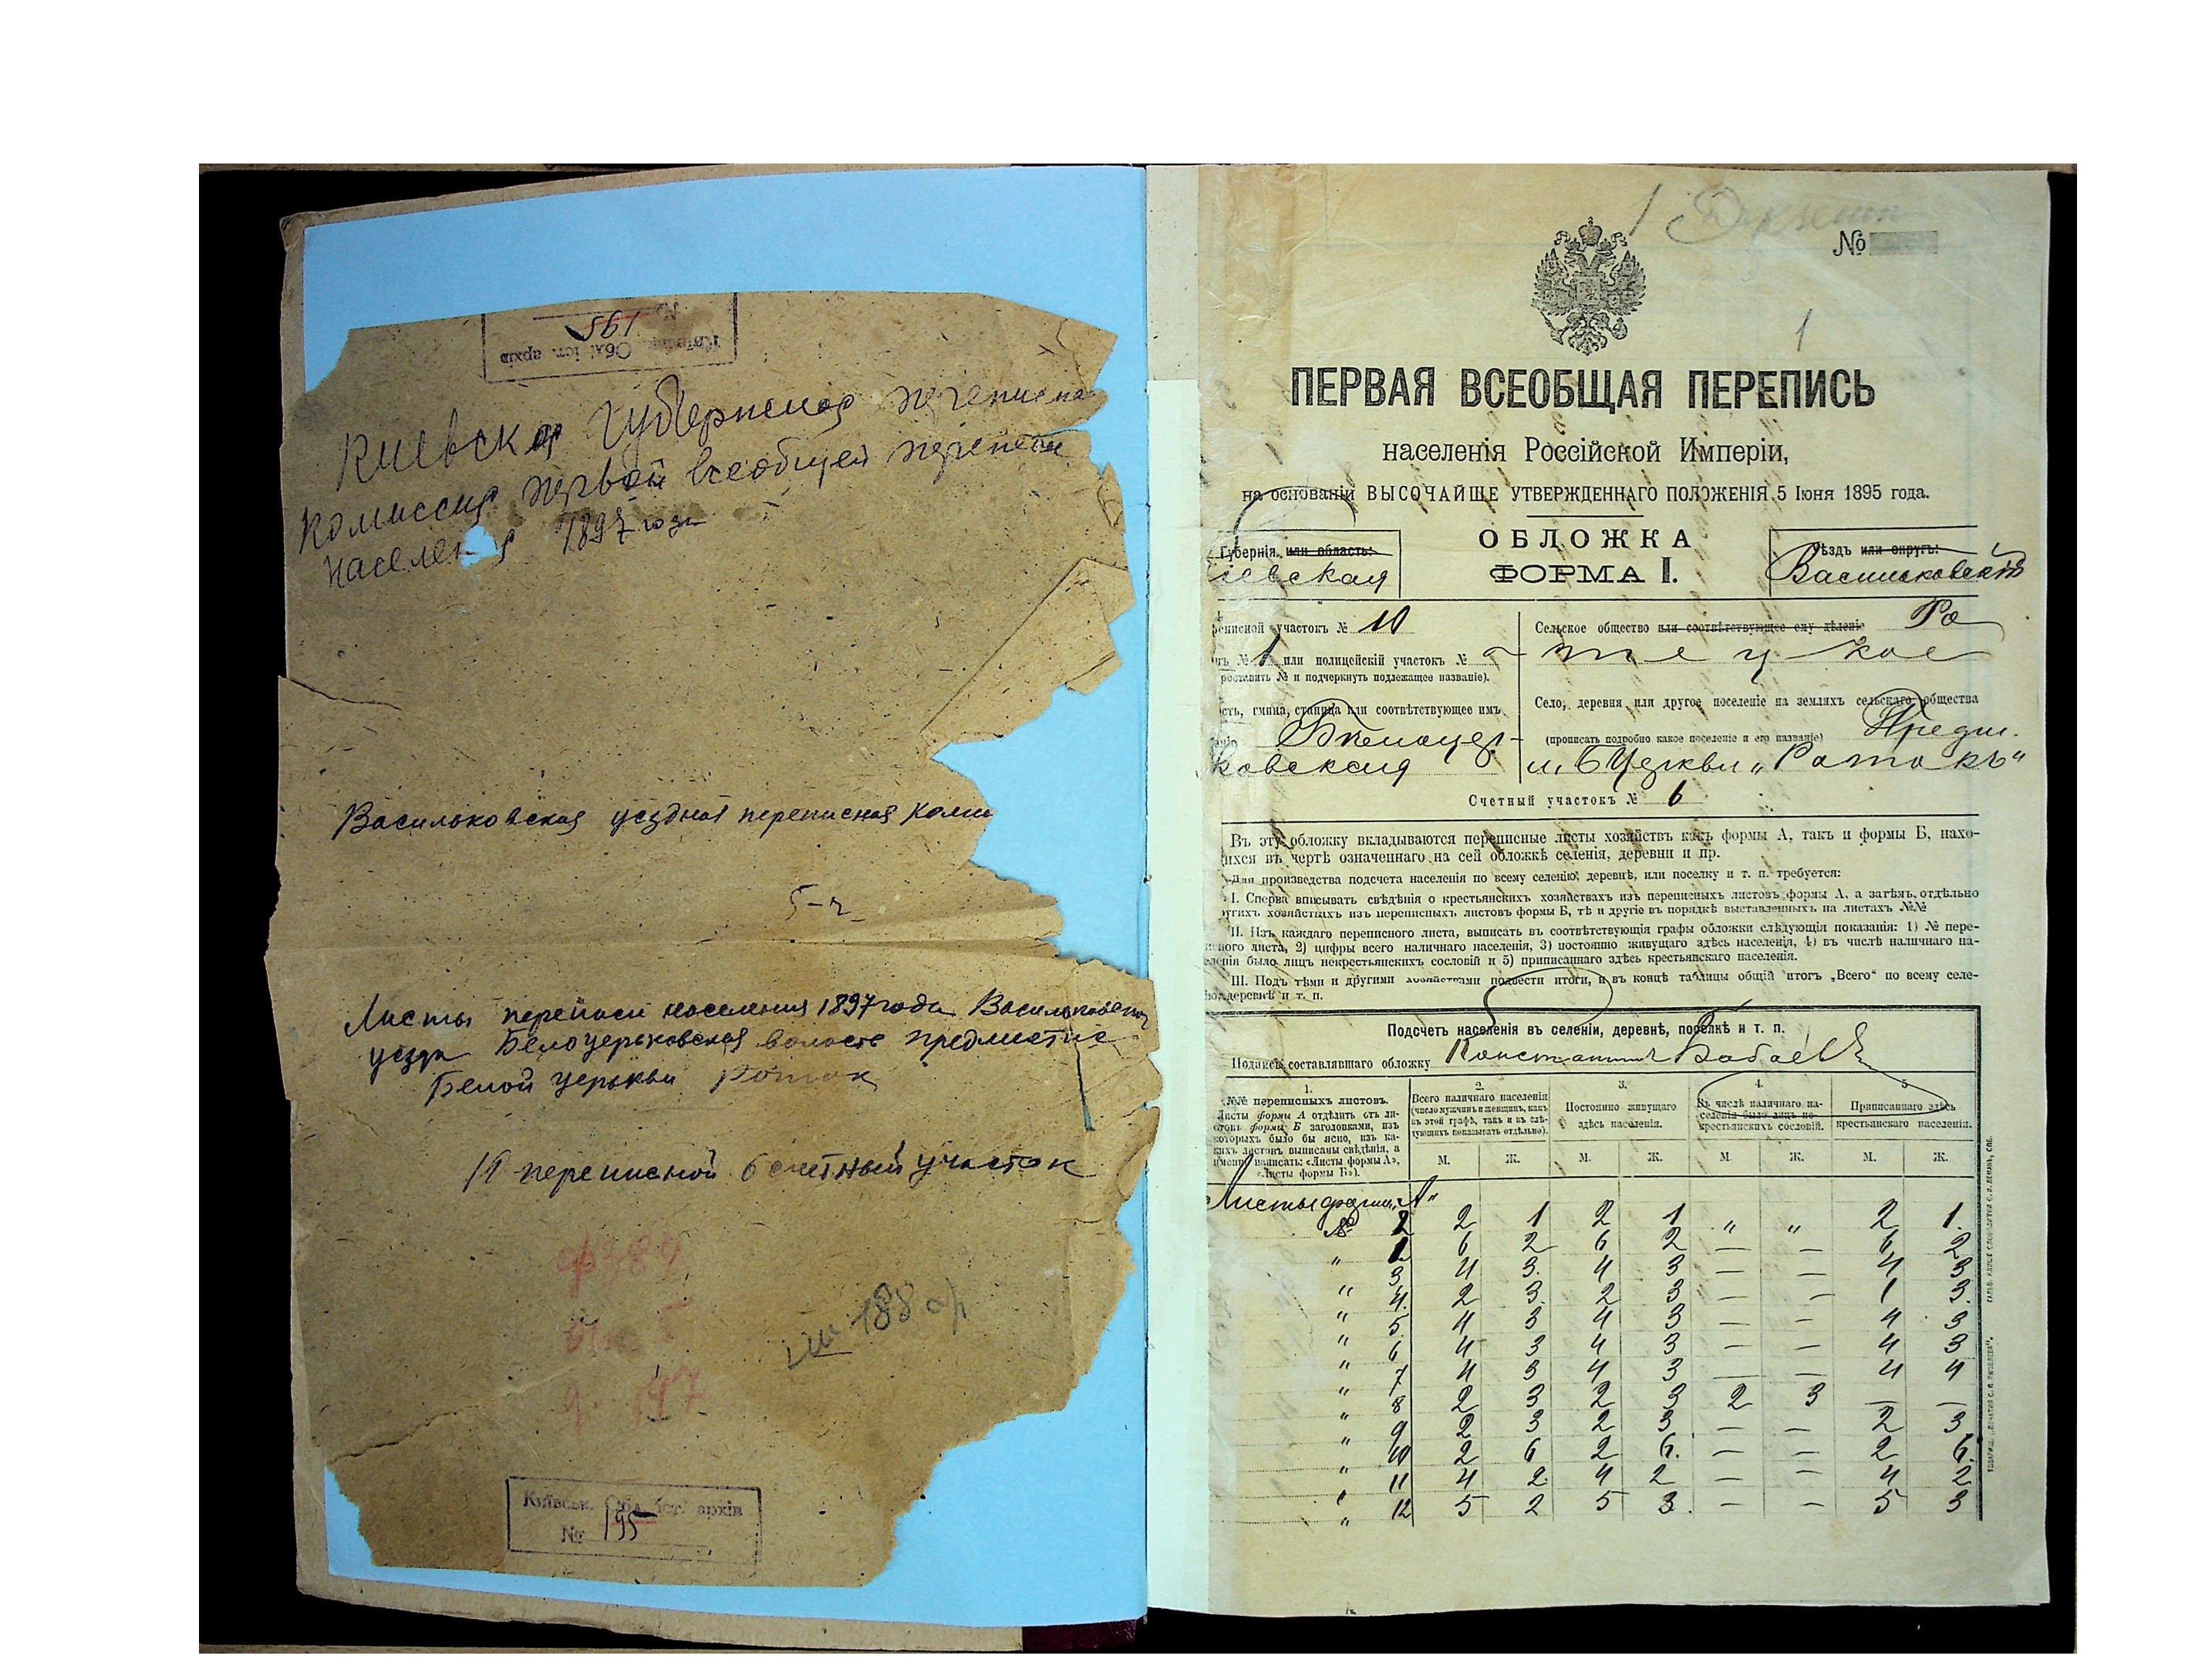 №
195
Київськ. Обл. іст. архів
Киевская губернская переписна
комиссия первой всеобщей переписи
населения 1897 года
Васильковская уездная переписная коми
Листы переписи населения 1897 года Васильковског
уезда Белоцерьковская волость предместие
Белой церькви Роток
10 переписной 6 счетный участок
ф 384
оп.
д. 197
188
Київськ. Обл. іст. архів
№ 195
1
№
1
ПЕРВАЯ ВСЕОБЩАЯ ПЕРЕПИСЬ
населенія Россійской Имперіи,
на основаніи ВЫСОЧАЙШЕ УТВЕРЖДЕННАГО ПОЛОЖЕНІЯ 5 Іюня 1895 года.
ОБЛОЖКА
ФОРМА I.
Губернія, или область:
іевская
Уѣздъ или округъ:
Васильковскій
реписной участокъ № 10
нъ № 1 или полицейскій участокъ №
роставить № и подчеркнуть подлежащее названіе).
ость, гмина, станица или соотвѣтствующее имъ
еніе Бѣлоцер-
ковская
Сельское общество или соотвѣтствующее ему дѣленіе Ро
тецкое
Село, деревня или другое поселеніе на земляхъ сельскаго общества
(прописать подробно какое поселеніе и его названіе) Предм.
м. Б Церкви „Ротокъ“
Счетный участокъ № 6
Въ эту обложку вкладываются переписные листы хозяйствъ какъ формы А, такъ и формы Б, нахо-
ихся въ чертѣ означеннаго на сей обложкѣ селенія, деревни и пр.
Для производства подсчета населенія по всему селенію, деревнѣ, или поселку и т. п. требуется:
I. Сперва вписывать свѣдѣнія о крестьянскихъ хозяйствахъ изъ переписныхъ листовъ формы А, а затѣмъ, отдѣльно
ругихъ хозяйствахъ изъ переписныхъ листовъ формы Б, тѣ и другіе въ порядкѣ выставленныхъ на листахъ №№
II. Изъ каждаго переписного листа, выписать въ соотвѣтствующія графы обложки слѣдующія показанія: 1) № пере-
исного листа, 2) цифры всего наличнаго населенія, 3) постоянно живущаго здѣсь населенія, 4) въ числѣ наличнаго на-
еленія было лицъ некрестьянскихъ сословій и 5) приписаннаго здѣсь крестьянскаго населенія.
III. Подъ тѣми и другими хозяйствами подвести итоги, и въ концѣ таблицы общій итогъ „Всего“ по всему селе-
ію, деревнѣ и т. п.
Подсчетъ населенія въ селеніи, деревнѣ, поселкѣ и т. п.
Подпись составлявшаго обложку Константинъ Бабаевъ
1.
№№ переписныхъ листовъ.
Листы формы А отдѣлить отъ ли-
стовъ формы Б заголовками, изъ
которыхъ было бы ясно, изъ ка-
кихъ листовъ выписаны свѣдѣнія, а
именно написать: «Листы формы А»,
«Листы формы Б»).
2.
Всего наличнаго населенія
(число мужчинъ и женщинъ, какъ
въ этой графѣ, такъ и въ слѣ-
дующихъ показывать отдѣльно).
3.
Постоянно живущаго
здѣсь населенія.
4.
Въ числѣ наличнаго на-
селенія было лицъ не-
крестьянскихъ сословій.
5
Приписаннаго здѣсь
крестьянскаго населенія.
М. Ж. М. Ж. М. Ж. М. Ж.
Листы формы „А“
№ 2 2 1 2 1 „ „ 2 1.
„ 1 6 2 6 2 — — 6 2
„ 3 4 3. 4 3 — — 4 3
„ 4. 2 3. 2 3 — — 1 3.
„ 5 4 3 4 3 — — 4 3
„ 6 4 3 4 3 — — 4 3
„ 7 4 3 4 3 — — 4 4
„ 8 2 3 2 3 2 3 — —
„ 9 2 3 2 3 — — 2 3
„ 10 2 6 2 6. — — 2 6.
„ 11 4 2 4 2 — — 4 2
„ 12 5 2 5 3. — — 5 3